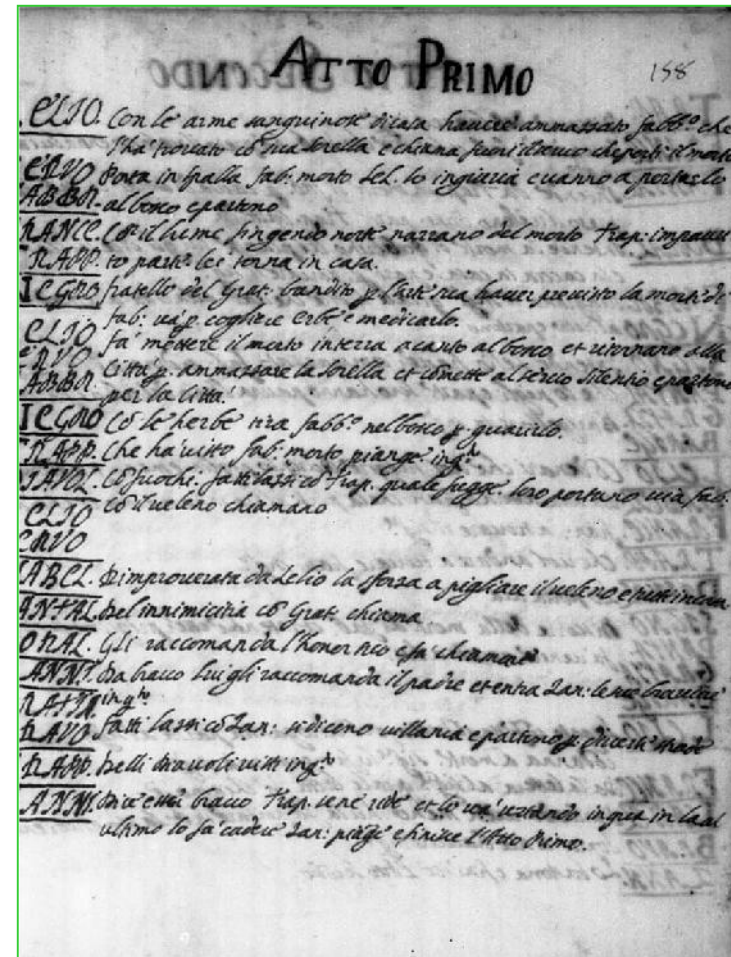 ATTO PRIMO
158
ELIO. Con le arme sanguinose di casa havere ammazzato fabb.º che
l'ha trovato cõ sua sorella e chiama fuori il servo che porti il morto
ERVO Porta in spalla fab: morto Lel. lo ingiuria e vanno a portarlo
FABBR. al bosco e partono
RANCE. Cõ il lume fingendo notte narrano del morto Trap: impauri
TRAPP. to parte lei torna in casa.
NEGRO fratello del Grat: bandito p l'arte sua haver previsto la morte di
fab: va p. cogliere erbe e medicarlo.
ELIO fa mettere il morto in terra a canto al bosco et ritornano alla
ERVO Città p. ammazzare la sorella et cõmette al servo silentio e partono
FABBR. per la Città
NEGRO Cõ le herbe tira fabb.º nel bosco p. guarirlo.
TRAPP. Che ha visto fab: morto piange in q.to
DIAVOL. Cõ fuochi: fatti lazzi cõ Trap. quale fugge. loro portano via fab:
ELIO Cõ il veleno chiamano
ERVO
ISABEL. Rimproverata da Lelio la sforza a pigliare il veleno e tutti in casa
ANTAL. Del inimicitia cõ Grat: chiama
ORAL. Gli raccomanda l'honor suo e fa chiamare
ANNI. Da bravo lui gli raccomanda il padre et entra Zan: le sue bravure
in q.to
RAVO fatti lazzi cõ Zan: si diceno villania e partono p. diverse strade
RAPP. Delli Diavoli visti in q.to
ANNI. Dice esser bravo Trap. se ne ride et lo va in la al
ultimo lo fa cadere Zan: piage e finisce l'Atto Primo.